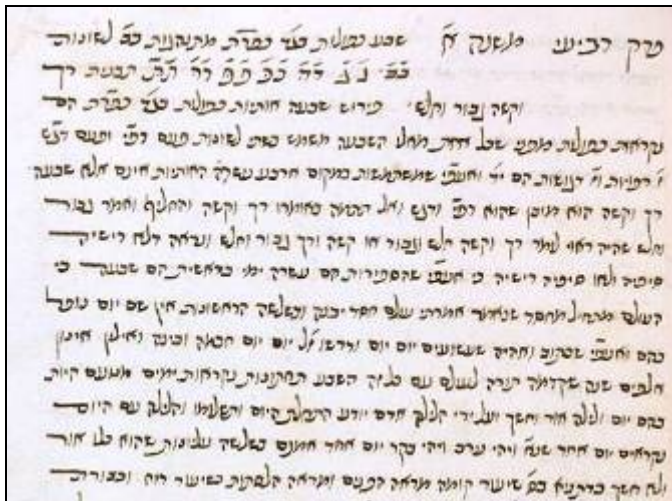 פרק רביעי משנה א' שבע כפולות בג״ד כפר״ת מתנהגות בב' לשונות
ב״ב ג״ג ד״ד כ״כ פ״פ ר״ר ת״ת תבנית רך
וקשה גבור וחלש פירוש שבעה אותיות כפולות בג״ד כפר״ת הם
נקראות כפולות מפני שכל אחת מאלו השבעה משמש בשתי לשונות פעם רפי ופעם דגש
ז' רפויות וז' דגושות הם י״ד ואעפ״י שמשתמשות במקום ארבע עשרה האותיות אינם אלא שבעה
רך וקשה הוא מובן שהוא רפי ודגש ואל תתמה באומרו רך וקשה והחליף ואמר גבור
וחלש שהיה ראוי לומר רך וקשה חלש וגבור או קשה ורך גבור וחלש ונראה דלאו רישיה
סיפיה ולאו סיפיה רישיה כי אעפ״י שהספירות הם עשרה ימי בראשית הם שבעה כי
העולם מתחיל מחסד שנאמר אמרתי עולם חסד יבנה ובשלשה הראשונות אין שם יום נופל
בהם ואעפ״י שכתוב ואהיה שעשועים יום יום ודרשו ז״ל יום יום חכמה ובינה ואילין אינון
אלפים שנה שקדמה תורה לעולם עם כל זה השבע תחתונות נקראות ימים מטעם היות
בהם יום ולילה אור וחשך ועל ידי הלילה אדם יודע התחלת היום ותשלומו והלילה עם היום
נקראים יום אחד שנא' ויהי ערב ויהי בקר יום אחד אמנם בשלשה עליונות שהוא כלו אור
ולא חשך כדתניא בס' שיעור קומה מראה הפנים ומראה הלסתות כשיעור רוח וכצורת